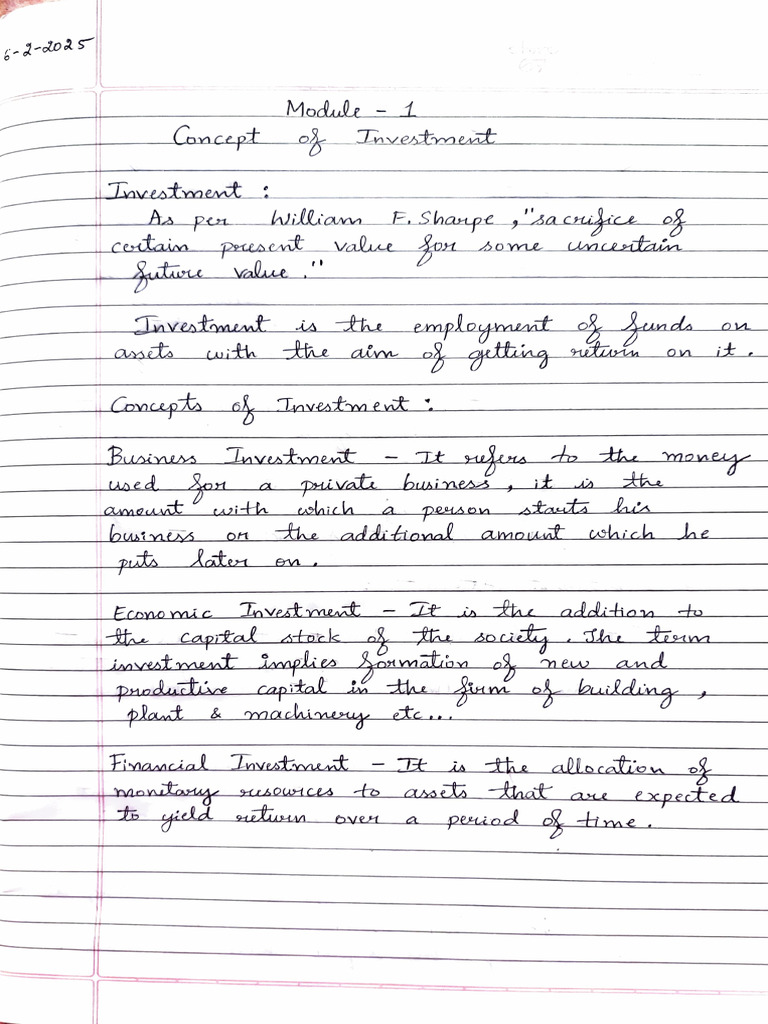 6-2-2025
Module - 1
Concept of Investment
Investment :
As per William F. Sharpe, "sacrifice of
certain present value for some uncertain
future value."
Investment is the employment of funds on
assets with the aim of getting return on it.
Concepts of Investment :
Business Investment - It refers to the money
used for a private business, it is the
amount with which a person starts his
business or the additional amount which he
puts later on.
Economic Investment - It is the addition to
the capital stock of the society. The term
investment implies formation of new and
productive capital in the firm of building,
plant & machinery etc...
Financial Investment - It is the allocation of
monetary resources to assets that are expected
to yield return over a period of time.